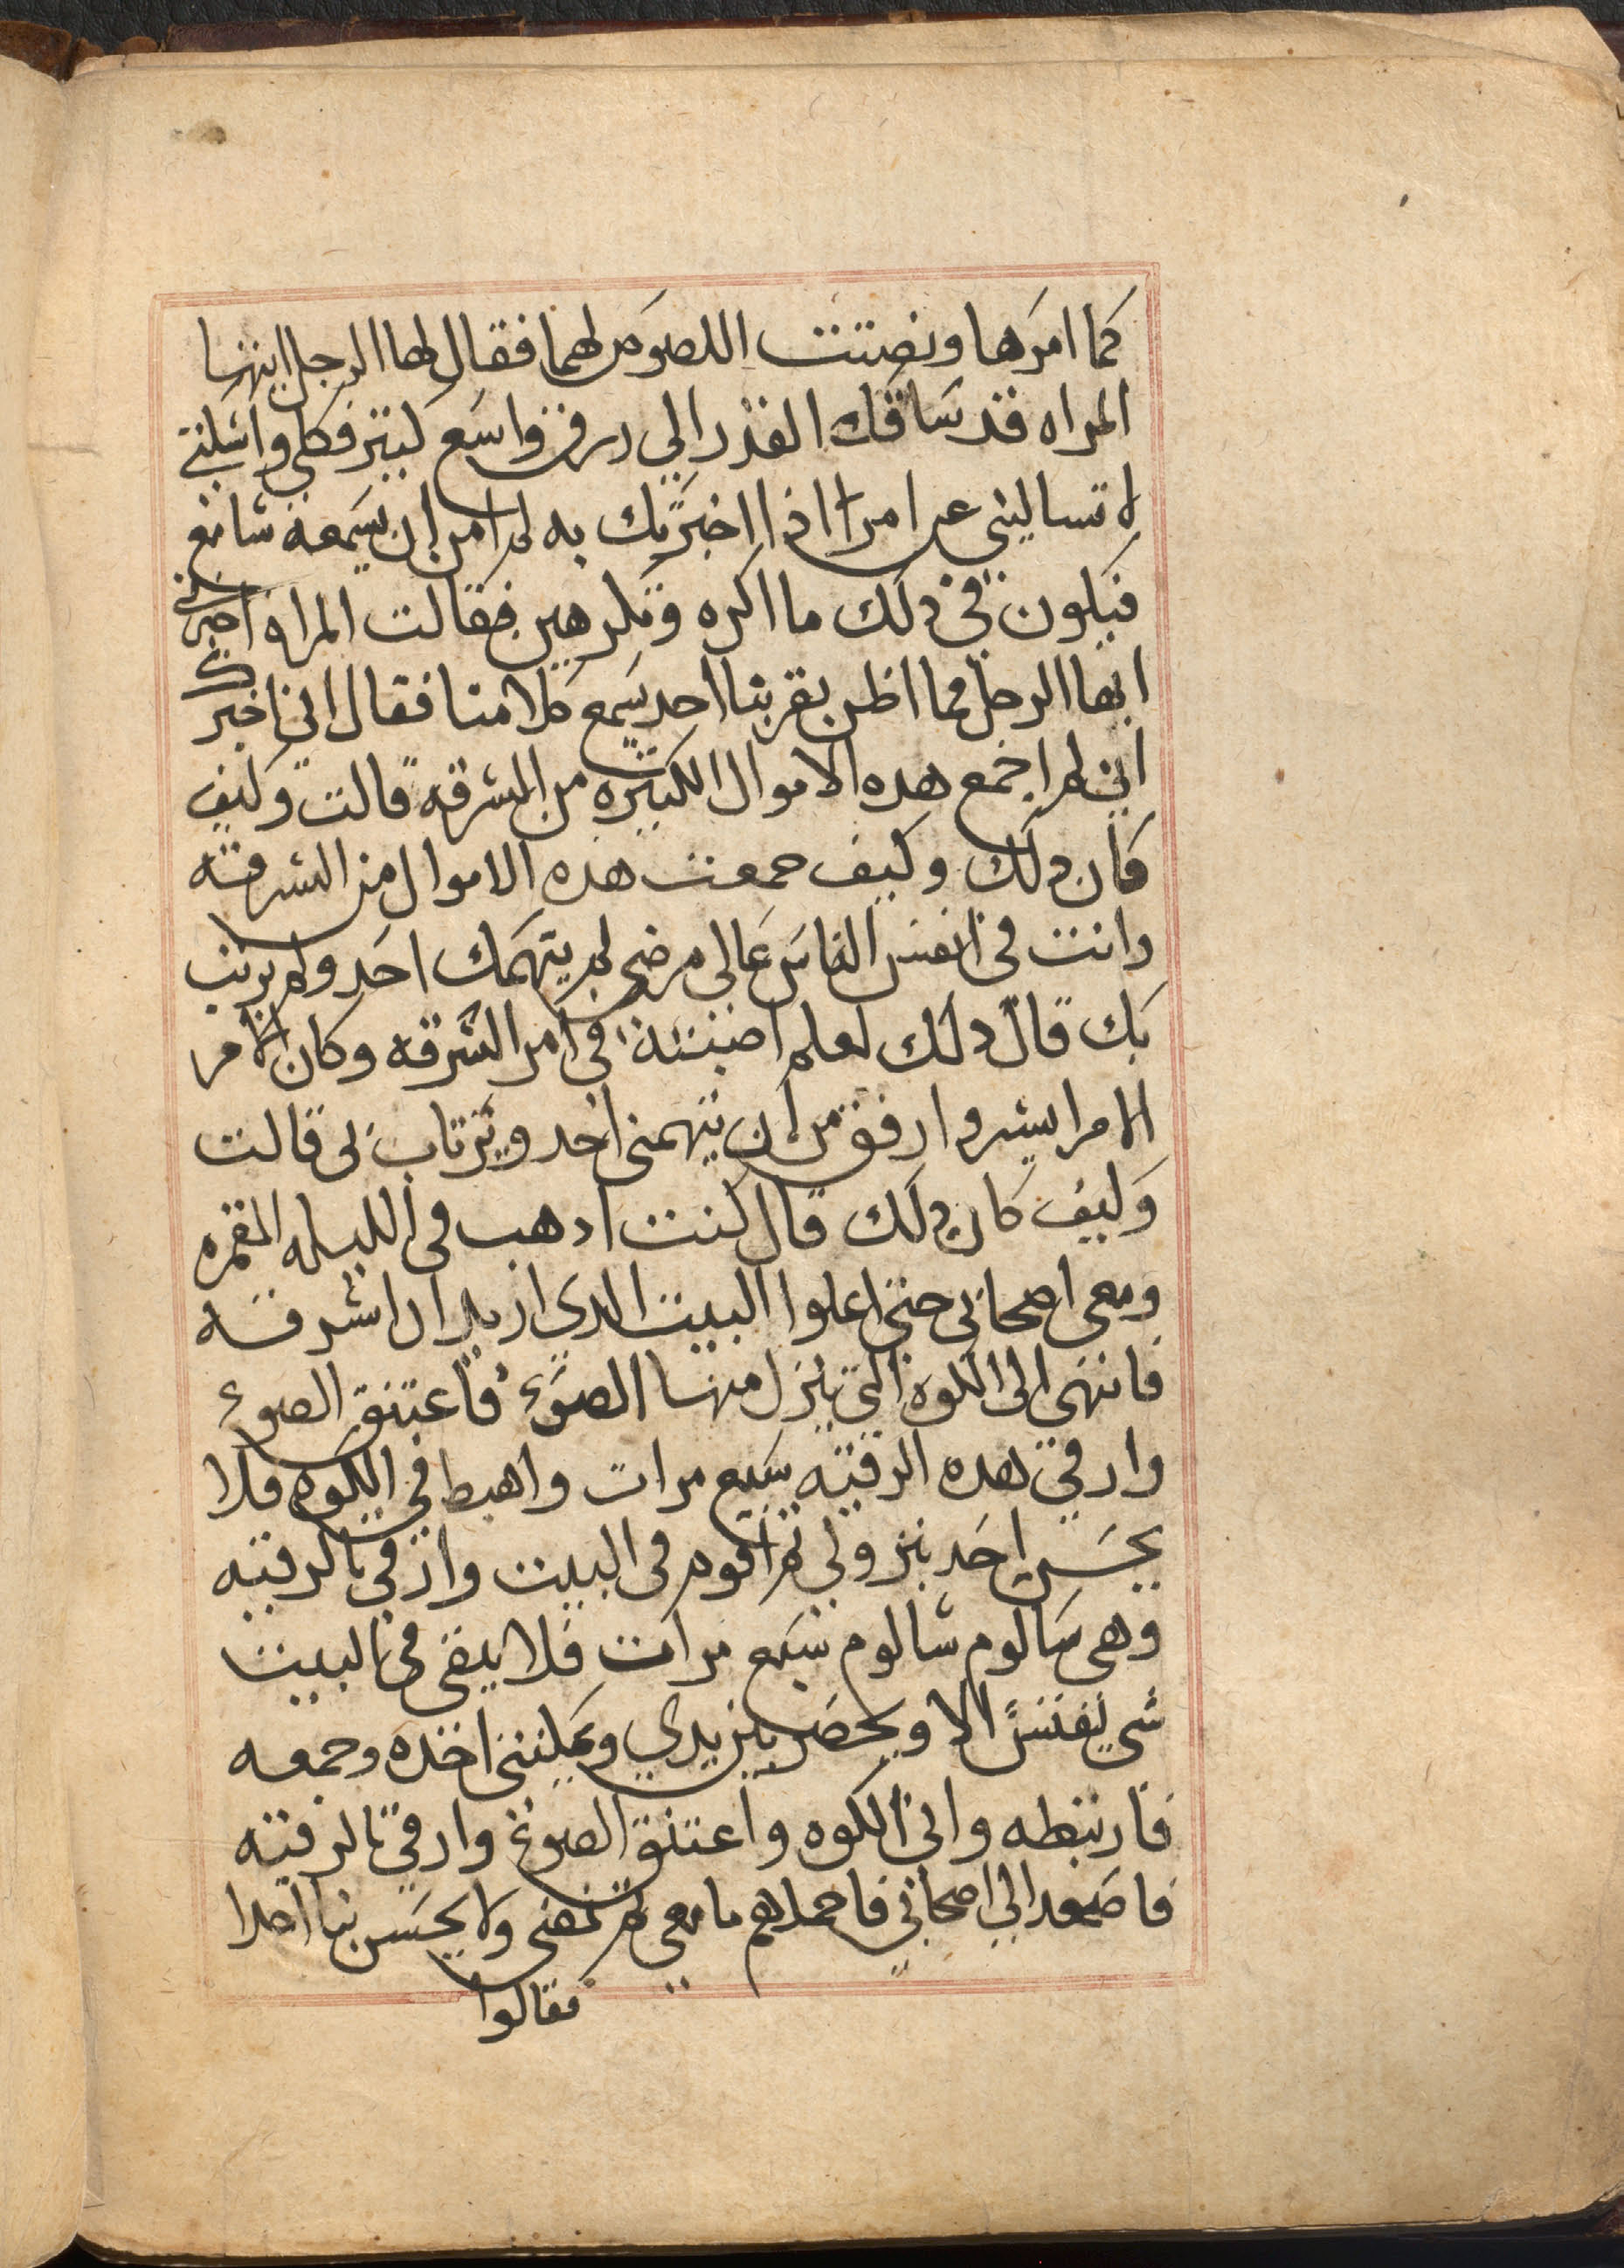 كما امرها ونصتت اللصوص لهما فقال لها الرجل ايتها
المراه قد ساقك القدر الي رزق واسع كبير فكلي واسكتي
لا تساليني عن امرا اذا اخبرتك به لم امن ان يسمعه سامع
فيكون في ذلك ما اكره وتكرهين فقالت المراه اخبرني
ايها الرجل فما اظن بقربنا احد يسمع كلامنا فقال اني اخبرك
اني لم اجمع هذه الاموال الكثيره من السرقه قالت وكيف
كان ذلك وكيف جمعت هذه الاموال من السرقه
وانت في انفس الناس عالي مرضي لم يتهمك احد ولم يرتب
بك قال ذلك لعلم اصبته في امر السرقه وكان الامر
الامر ايسر وارفق من ان يتهمني احد ويرتاب بي قالت
وكيف كان ذلك قال كنت اذهب في الليله المقمره
ومعي اصحابي حتي اعلوا البيت الذي اريد ان اسرقه
فانتهي الى الكوه التي ينزل منها الضوء فاعتنق الضوء
وارقي بهذه الرقيه سبع مرات واهبط في الكوه فلا
يحس احد بنزولي ثم اقوم في البيت وارقي بالرقيه
وهي شالوم شالوم سبع مرات فلا يبقي في البيت
شي نفيس الا ويحضر بين يدي ويمكنني اخذه وجمعه
فاربطه واتي الكوه واعتنق الضوء وارقي بالرقيه
فاصعد الي اصحابي فاحملهم ما معي ثم نمضي ولا يحس بنا احدا
فقالوا